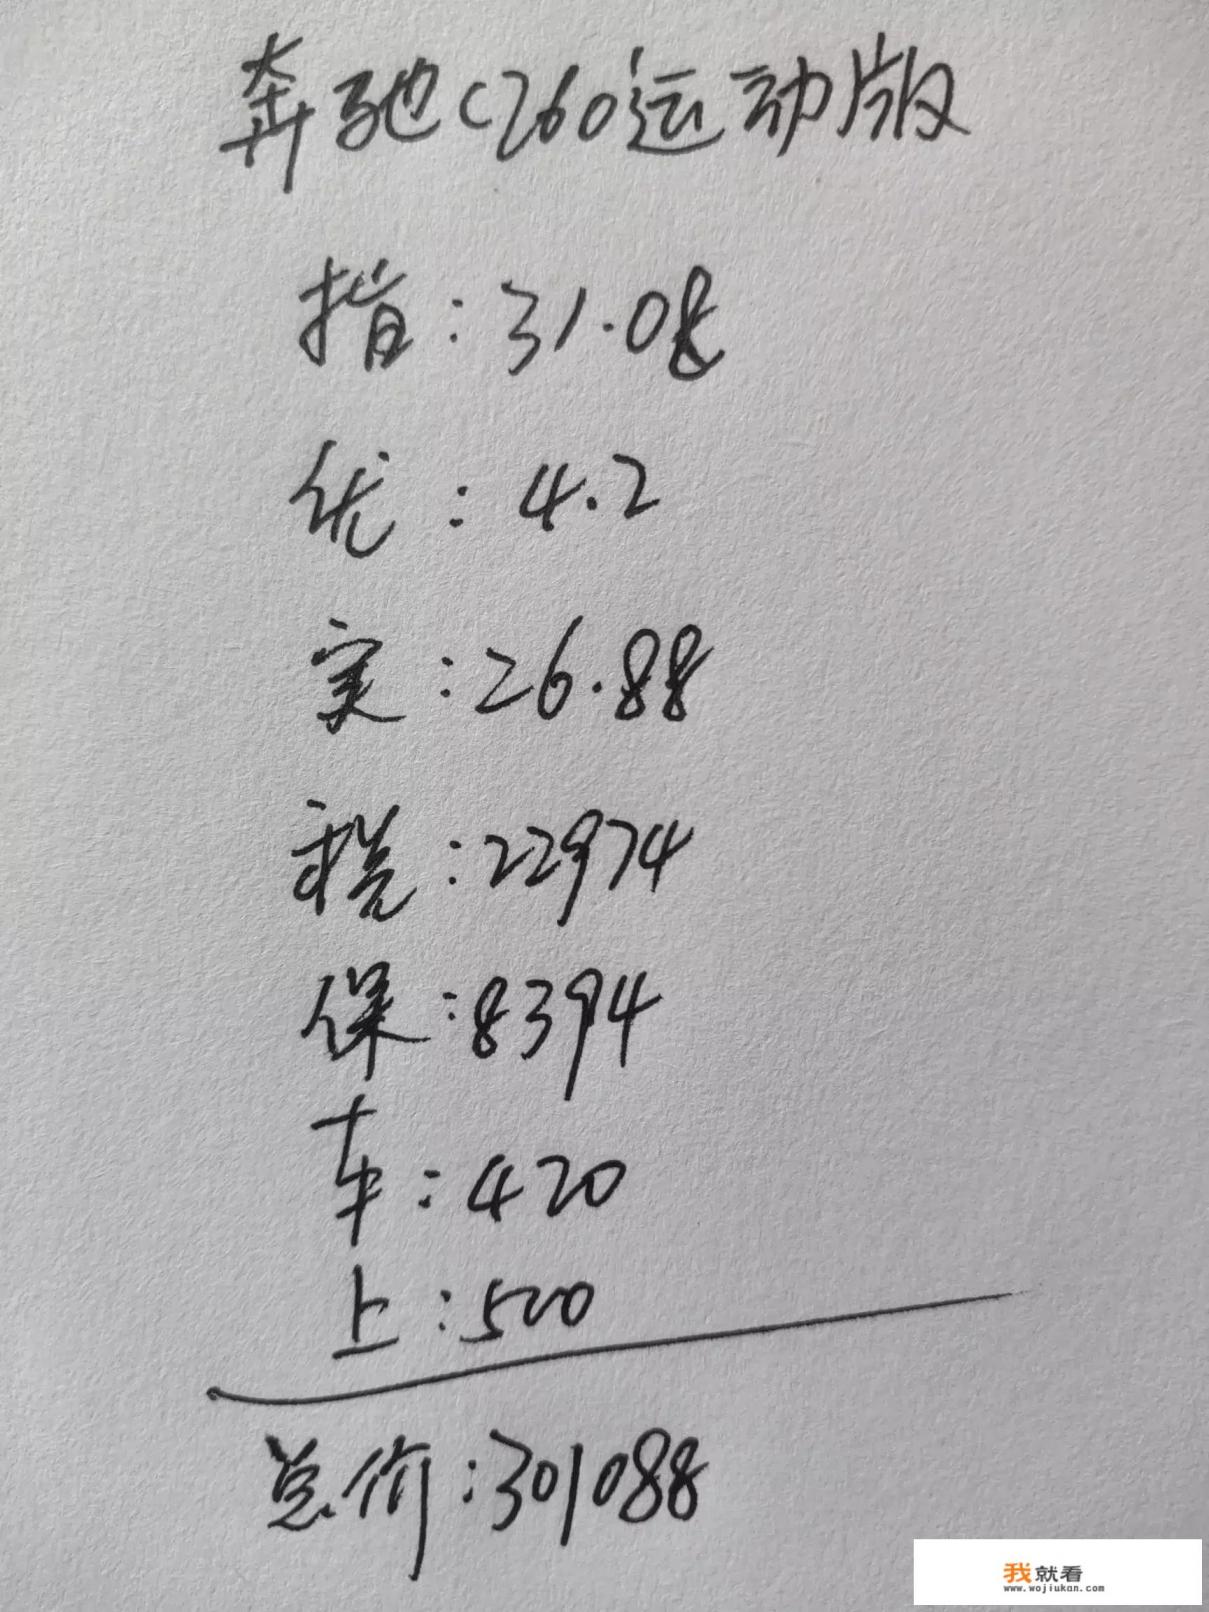 奔驰C260运动版
指:31.08
优:4.2
实:26.88
税:22974
保:8394
车:420
上:500
总价:301088
我就看
www.wojiukan.com